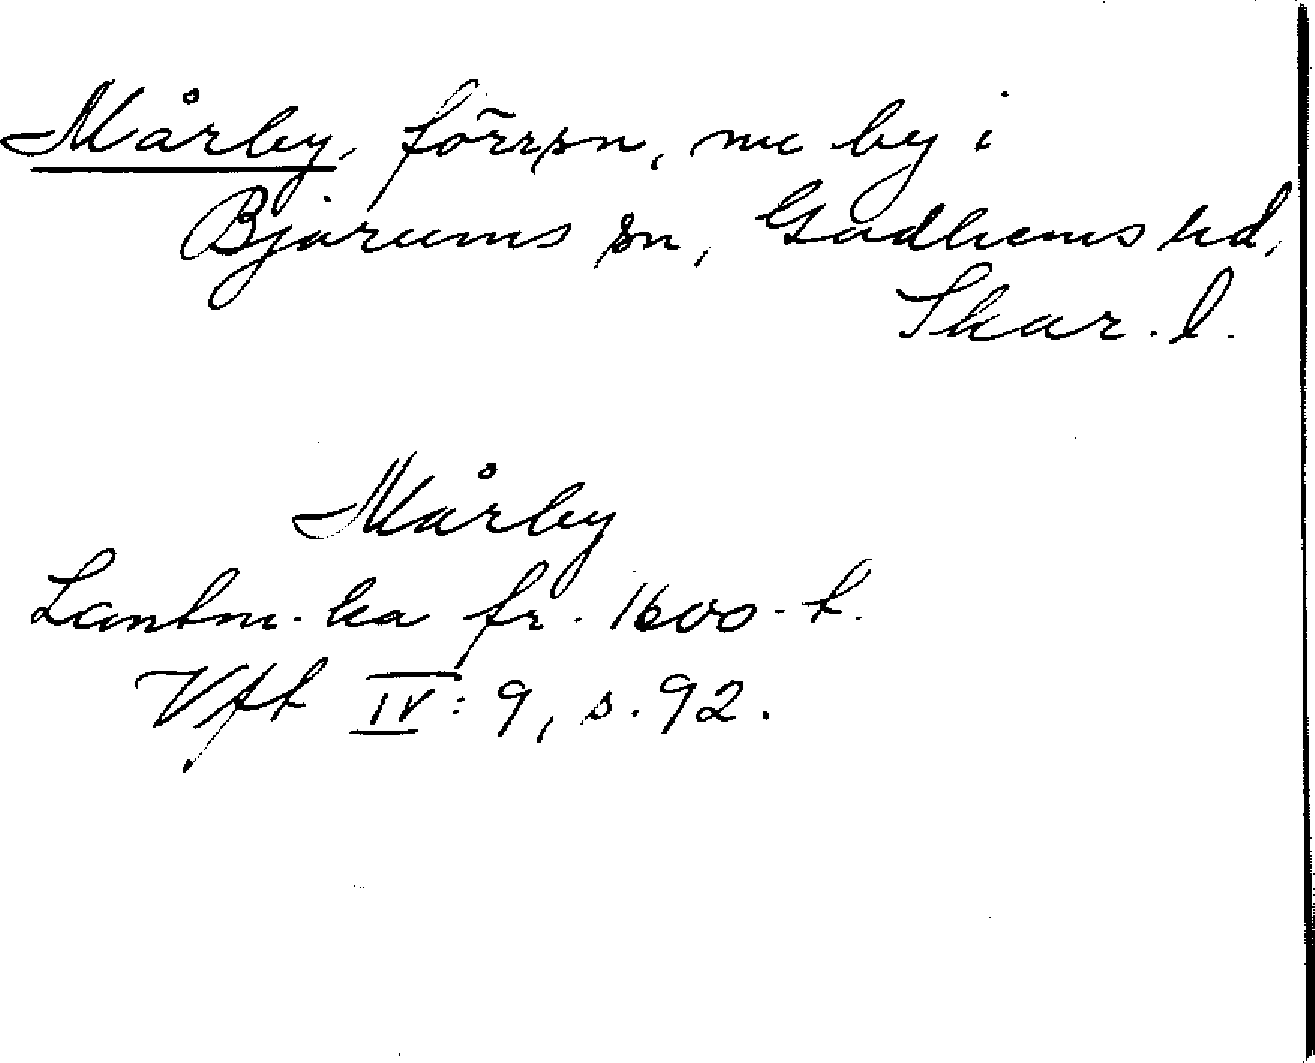 Mårby, förrsn, nu by i
Bjärums sn, Gudhems hd,
Skar. l.
Mårby
Lantm. ka fr. 1600-t.
Vft IV: 9, s. 92.